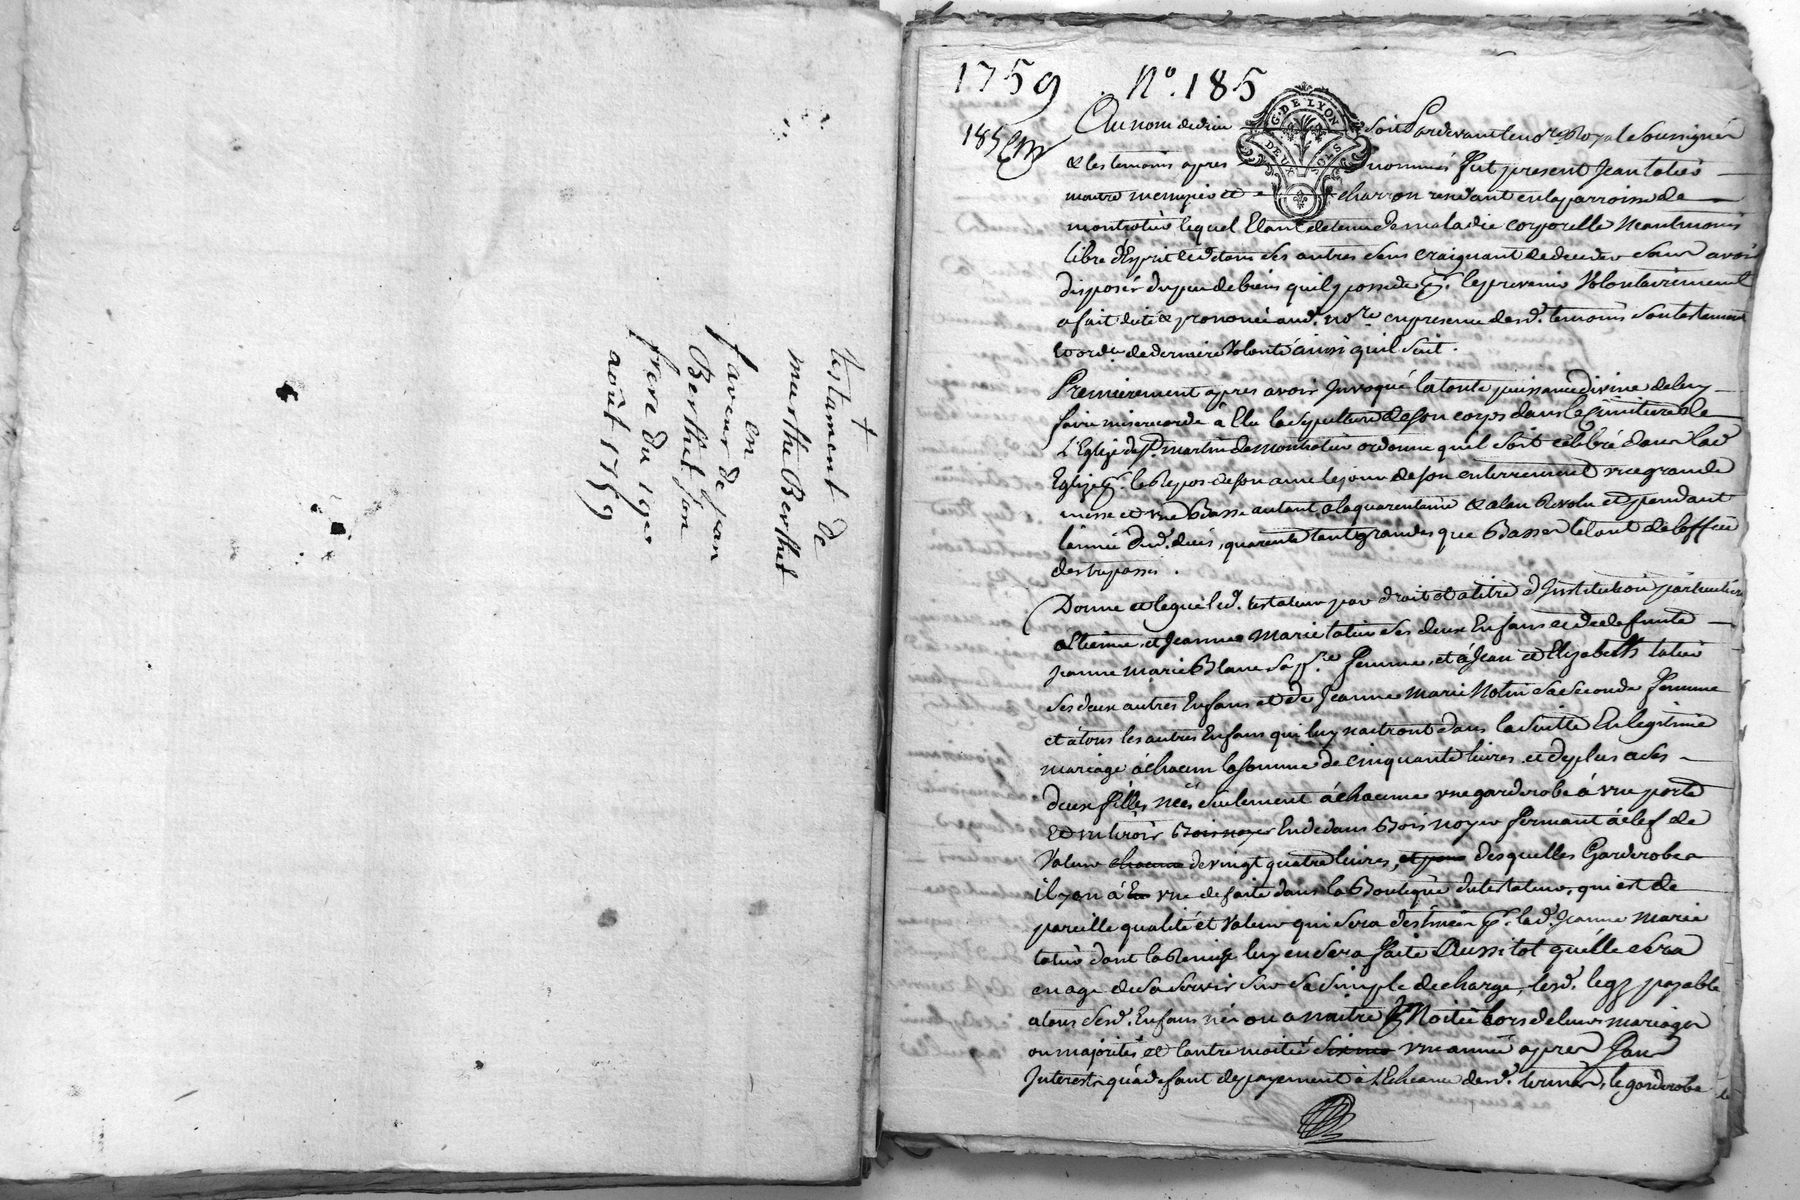 testament de
merthe Berthet
en
faveur de jean
Berthet son
frere du 19e
août 1759
1759 . N°. 185
185e
G. DE LYON
DEUX SOLS
Au nom de dieu soit Pardevant le nore Royal Soussigné
& les temoins apres nommés fut present Jean tatiés
maitre menuzier et charron residant en la parroisse de
montrotier lequel Etant detenu de maladie corporelle neantmoins
libre d'Esprit et dans ses autres sens craignant de deceder sans avoir
disposés du peu de biens quil possede pr. le prevenir Volontairement
a fait dicté & prononcé aud. nore en presence desd. temoins son testament
et ordre de derniere Volonté ainsi quil suit.
Premierement apres avoir Invoqué la toute puissance divine de luy
faire misericorde à Elu la sepulture de son corps dans le Cimitiere de
L'Eglize de St. martin de Montrotier ordonne quil soit célébré dans lad
Eglize pr. le Repos de son ame le jour de son enterrement une grande
messe et une Basse autant a la quarentaine & a l'an Revolu et pendant
l'année dud. deces, quarente tant grandes que Basses le tout de l'office
des trepassés.
Donne et legue led. testateur par droit et a titre d'Institution particuliere
a Etienne et Jeanne Marie tatiés ses deux Enfans et de defunte
Jeanne marie Blanc sa pre. femme, et à Jean et Elizabeth tatiés
ses deux autres Enfans et de Jeanne Marie Notin sa seconde femme
et à tous les autres Enfans qui luy naitront dans la suitte En legitime
mariage a chacun la somme de cinquante livres et de plus a ses
deux filles nées seulement à chacune une garderobe à une porte
Et un tiroir Bois noyer En dedans Bois noyer fermant à clef de
Valeur chacune de vingt quatre livres, et pour desquelles Garderobes
il y en à En une de faite dans la Boutique du testateur, qui est de
pareille qualité et Valeur qui sera destinée pr. lad. Jeanne Marie
tatiés dont la Remise luy en sera faite Aussitot quélle sera
en age de sa servir sur sa simple decharge, lesd. legs payable
a tous sesd. Enfans nés ou a naitre Moitié lors de leurs mariages
ou majorités et l'autre moitié six mois une année apres sans
Interests qu'à defaut de payement à l'Echeance desd. termes, le garderobe